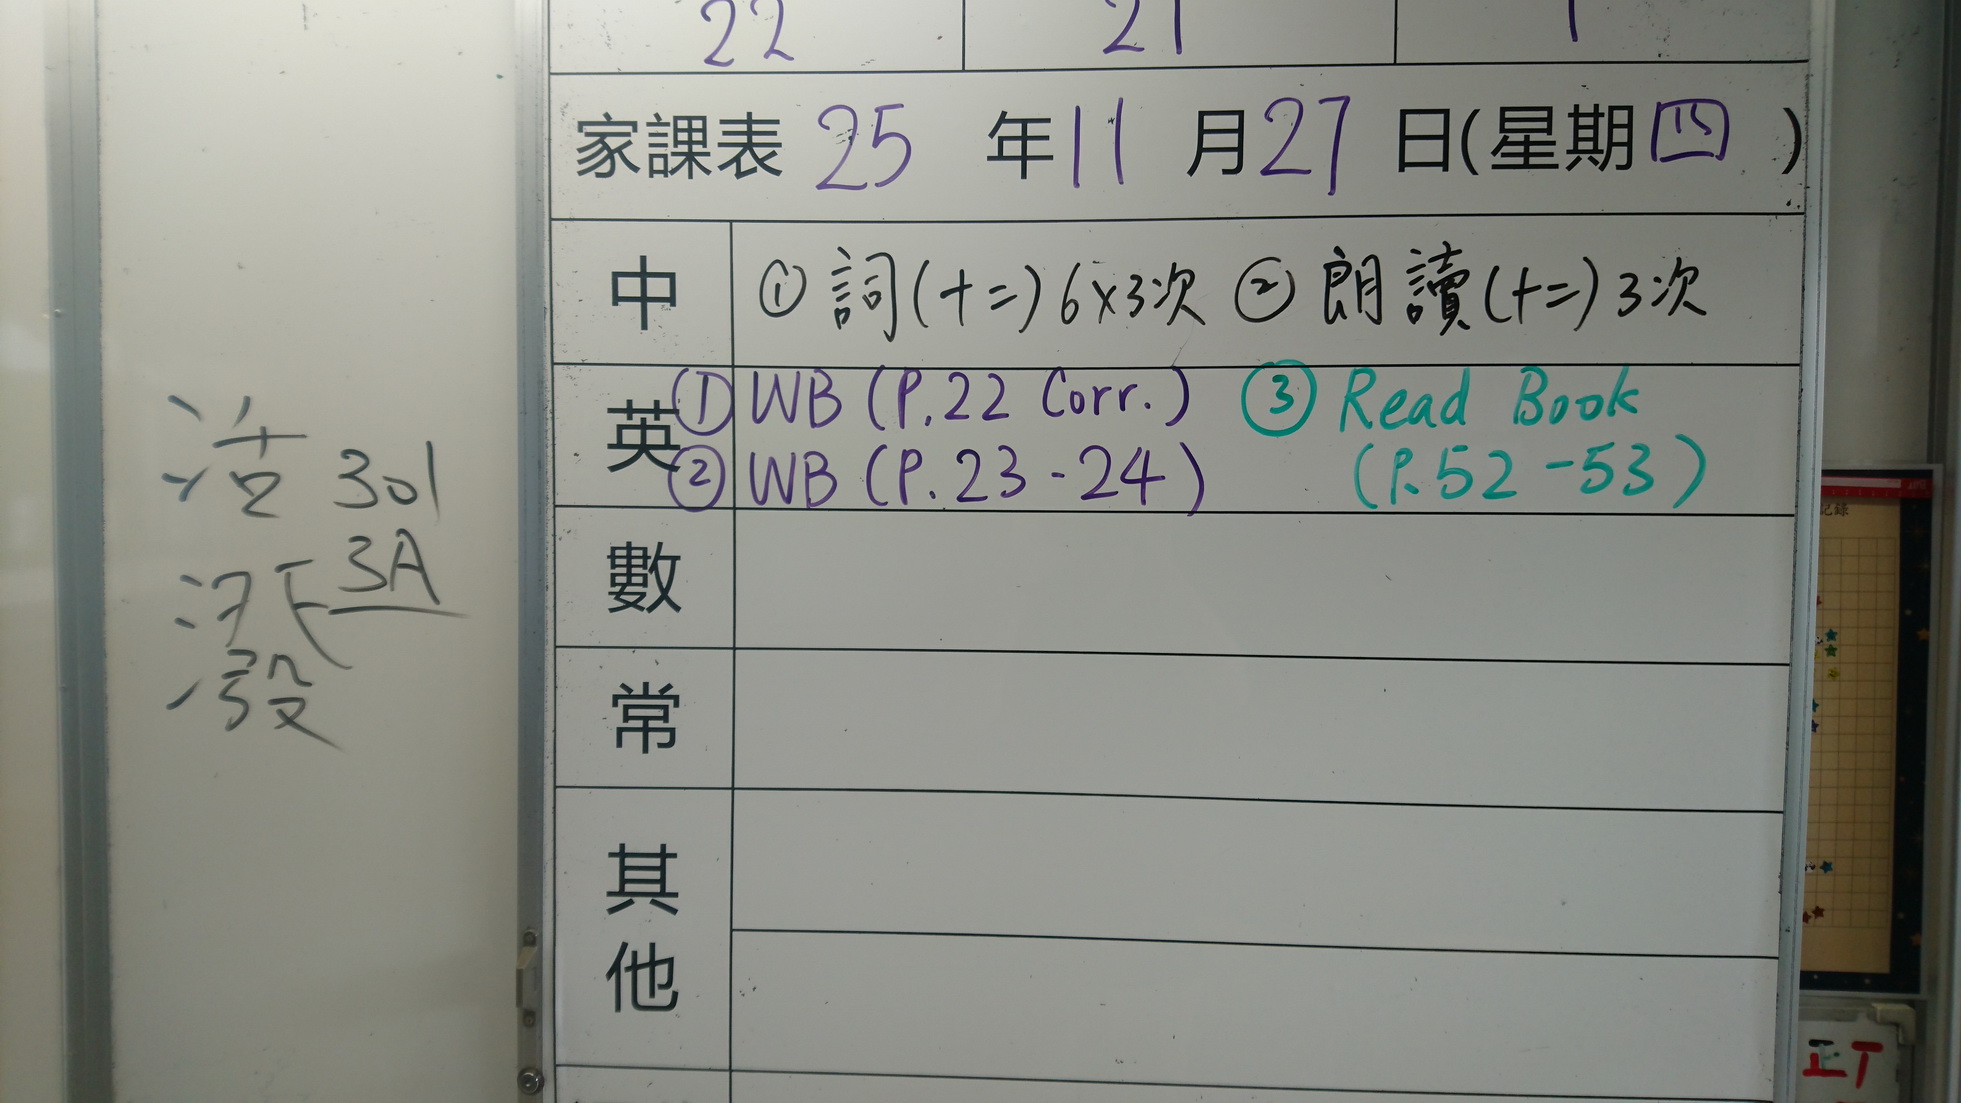 22 21 1
家課表 25 年 11 月 27 日(星期四)
中 ① 詞(十二)6x3次 ② 朗讀(十二)3次
英 ① WB (P.22 Corr.) ③ Read Book
② WB (P.23-24) (P.52-53)
數
常
其他
活 301
3A
潑
記錄